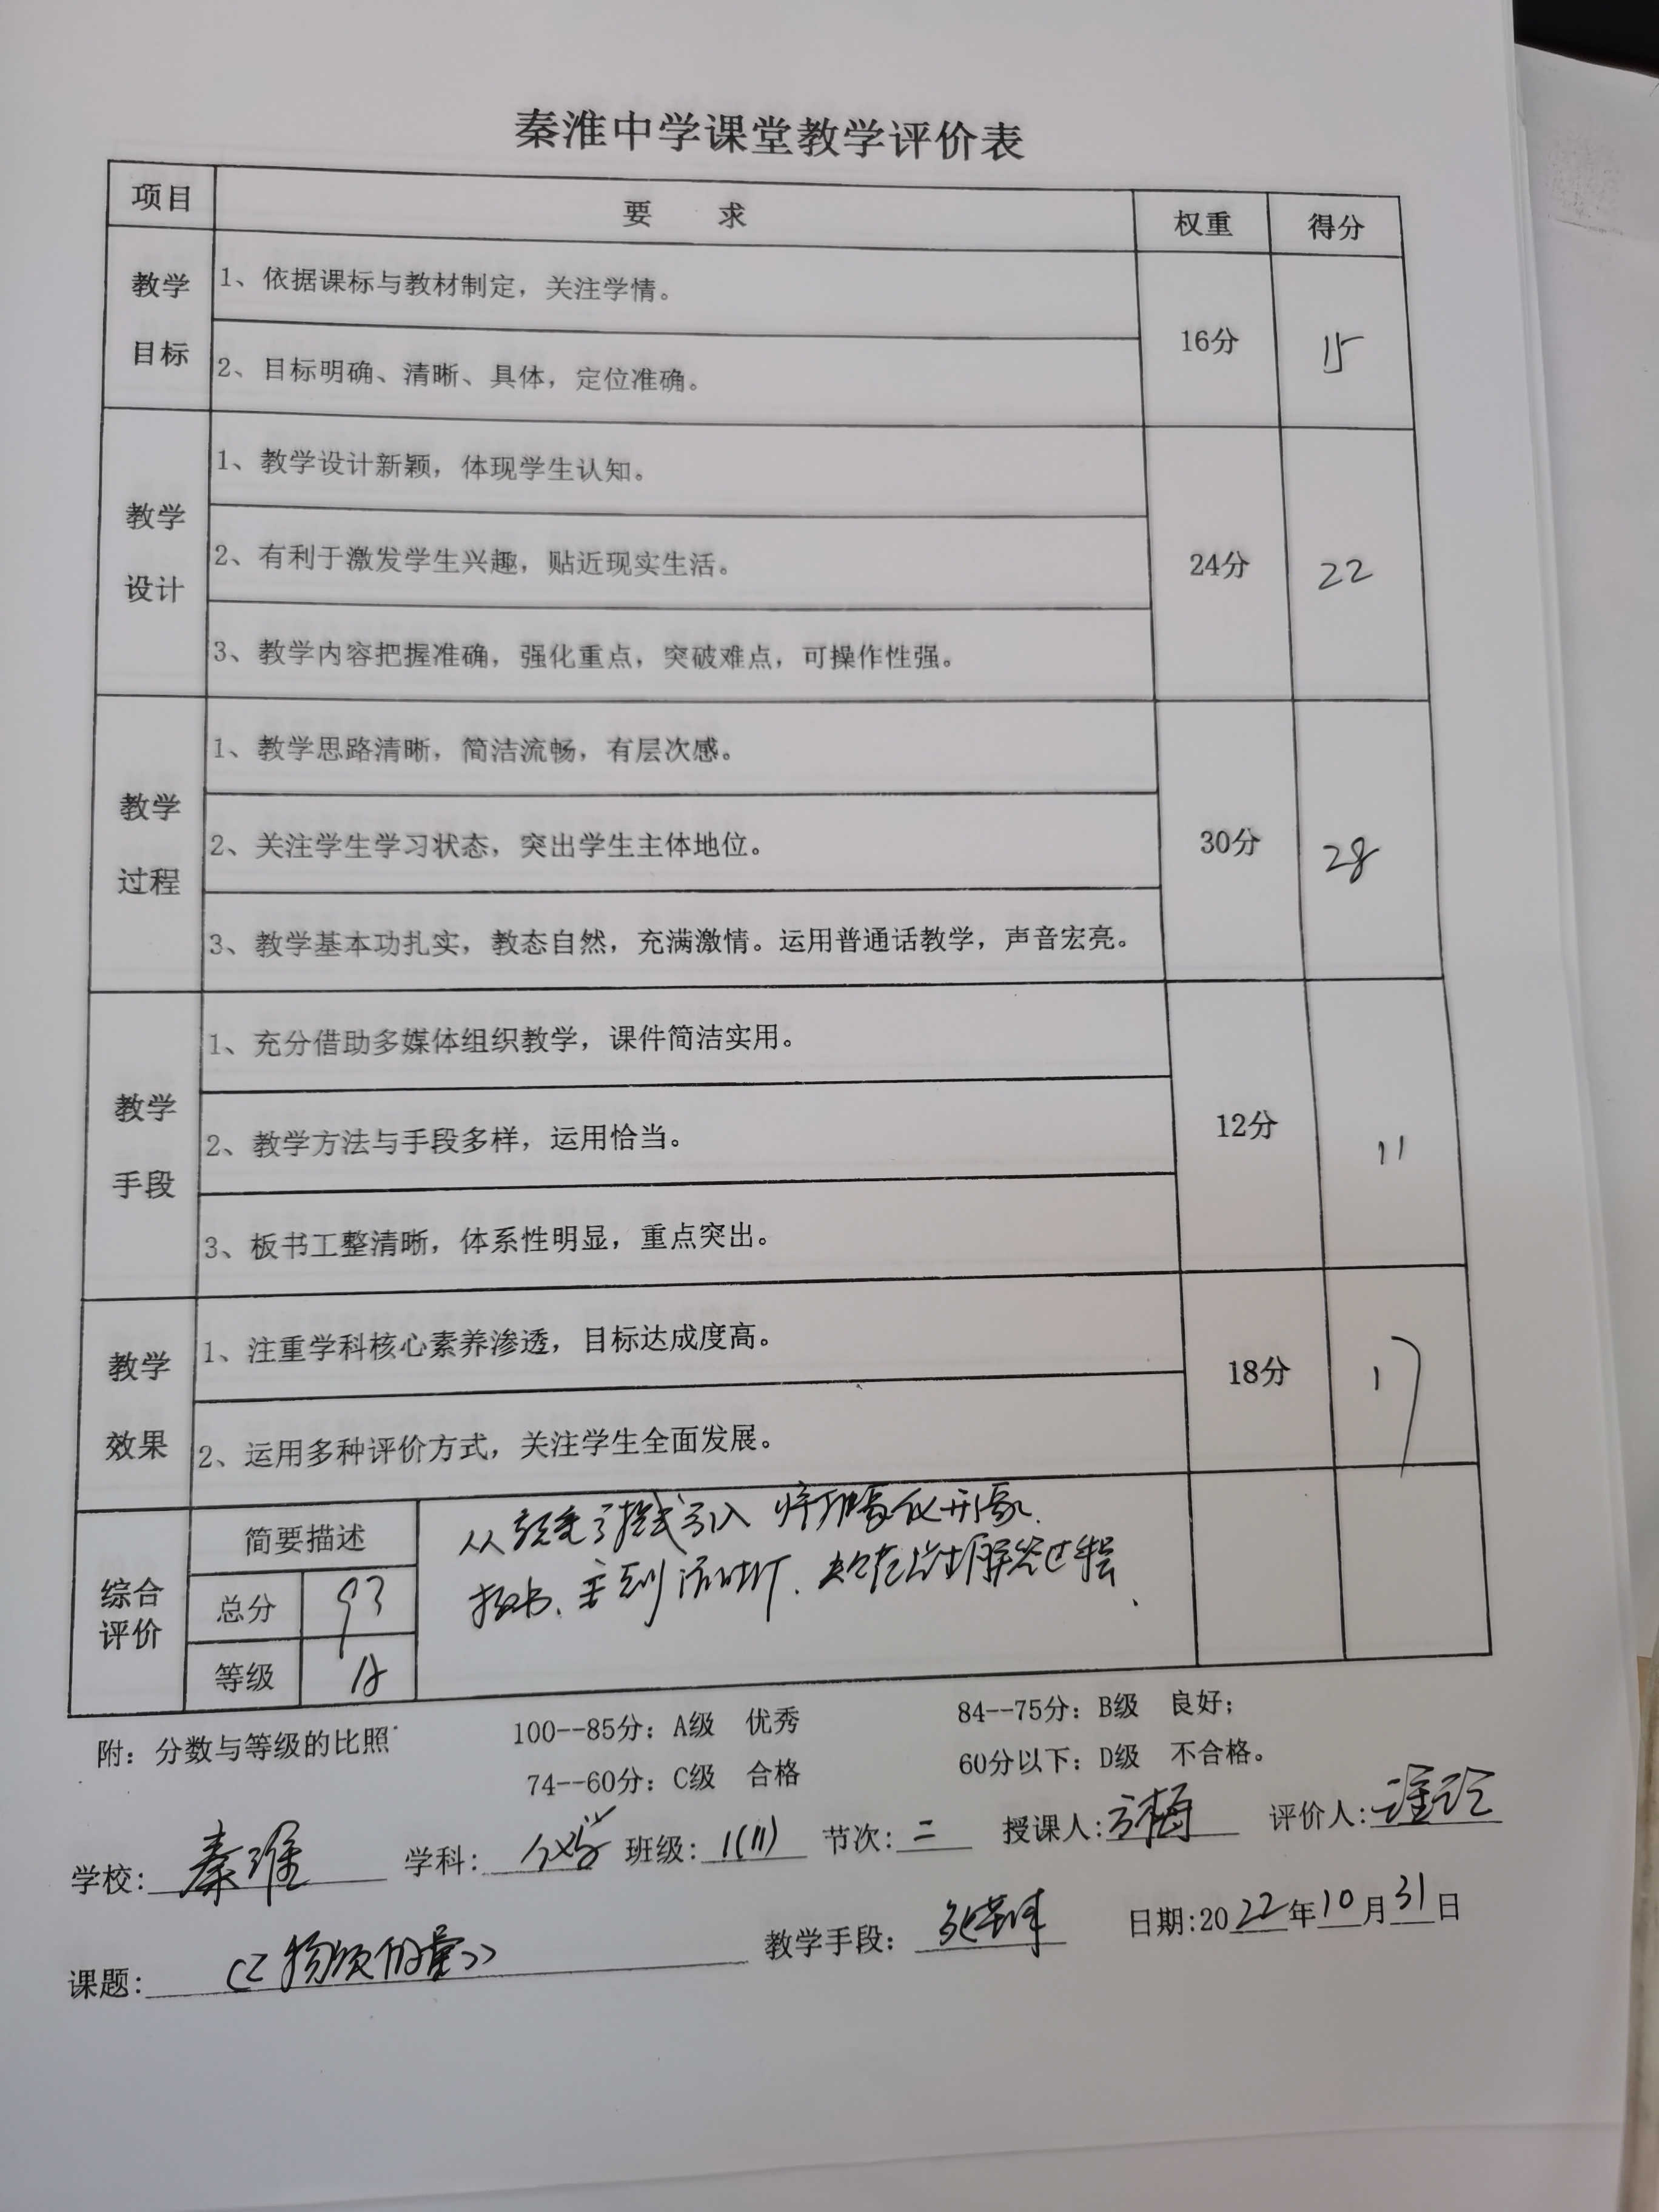 秦淮中学课堂教学评价表
项目 要 求 权重 得分
教学目标
1、依据课标与教材制定，关注学情。
2、目标明确、清晰、具体，定位准确。
16分 15
教学设计
1、教学设计新颖，体现学生认知。
2、有利于激发学生兴趣，贴近现实生活。
3、教学内容把握准确，强化重点，突破难点，可操作性强。
24分 22
教学过程
1、教学思路清晰，简洁流畅，有层次感。
2、关注学生学习状态，突出学生主体地位。
3、教学基本功扎实，教态自然，充满激情。运用普通话教学，声音宏亮。
30分 28
教学手段
1、充分借助多媒体组织教学，课件简洁实用。
2、教学方法与手段多样，运用恰当。
3、板书工整清晰，体系性明显，重点突出。
12分 11
教学效果
1、注重学科核心素养渗透，目标达成度高。
2、运用多种评价方式，关注学生全面发展。
18分 17
综合评价
简要描述
总分 93
等级 A
引入 将抽象化形象
板书、解答过程
附：分数与等级的比照 100--85分：A级 优秀 84--75分：B级 良好；
74--60分：C级 合格 60分以下：D级 不合格。
学校：秦淮 学科：化学 班级：1(11) 节次：二 授课人：方梅 评价人：
课题：《物质的量》 教学手段： 日期：2022年10月31日